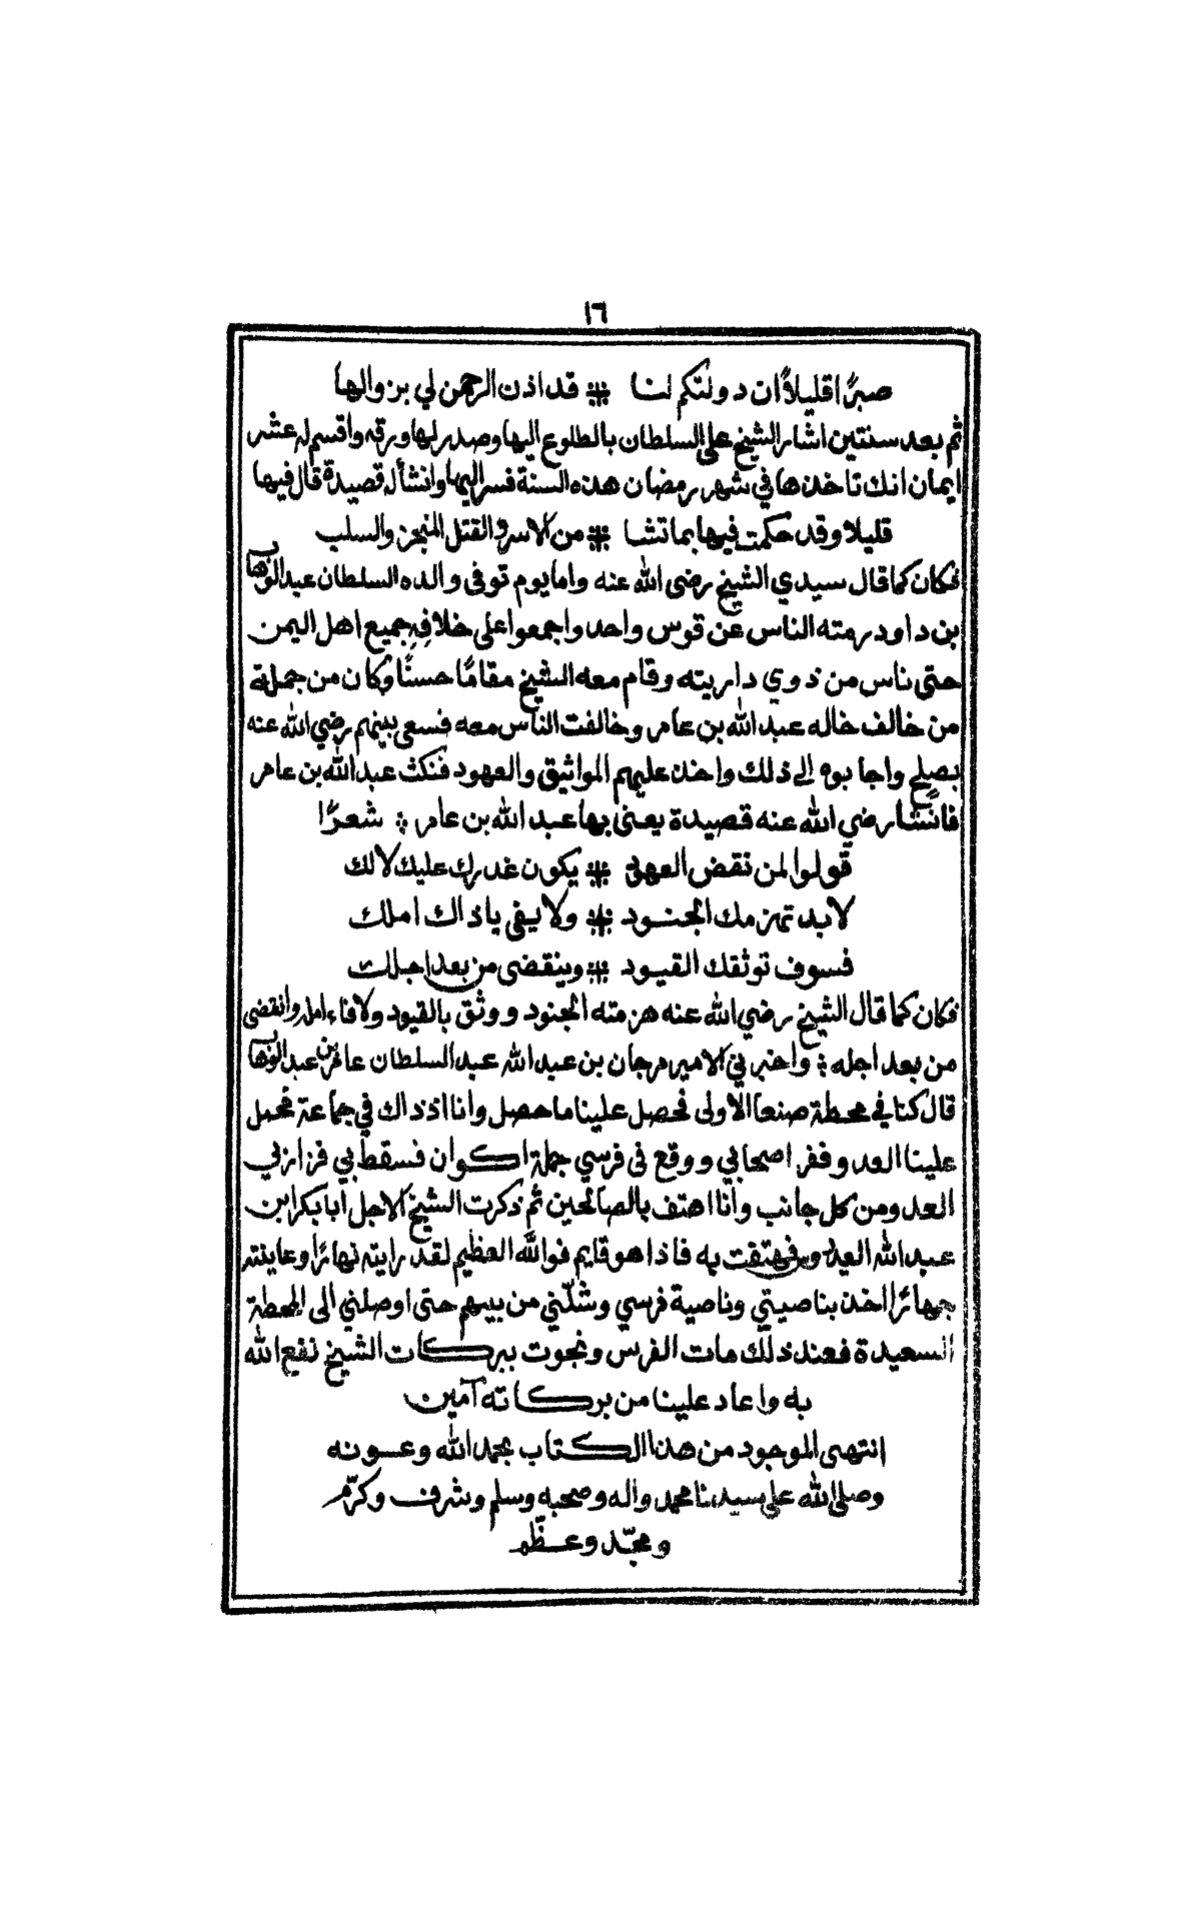 ١٦
صبرًا قليلاً ان دولتكم لنا ⁜ قد اذن الرحمن لي بزوالها
ثم بعد سنتين اشار الشيخ على السلطان بالطلوع اليها وصدر لها ورقه واقسم له عشر
ايمان انك تاخذها في شهر رمضان هذه السنة فسر اليها وانشأ له قصيدة قال فيها
قليلا وقد حكمت فيها بما تشا ⁜ من الاسر والقتل المنجز والسلب
فكان كما قال سيدي الشيخ رضى الله عنه واما يوم توفى والده السلطان عبد الوهاب
بن داود رمته الناس عن قوس واحد واجمعوا على خلافه جميع اهل اليمن
حتى ناس من ذوي داريته وقام معه الشيخ مقامًا حسنًا وكان من جملة
من خالف خاله عبد الله بن عامر وخالفت الناس معه فسعى بينهم رضي الله عنه
بصلح واجابوه الى ذلك واخذ عليهم المواثيق والعهود فنكث عبد الله بن عامر
فانشا رضي الله عنه قصيدة يعنى بها عبد الله بن عامر ؛ شعرًا
قولوا لمن نقض العهد ⁜ يكون غدرك عليك لا لك
لا بد تهزمك الجنود ⁜ ولا يفى يا ذاك املك
فسوف توثقك القيود ⁜ وينقضى من بعد اجلك
فكان كما قال الشيخ رضي الله عنه هزمته الجنود ووثق بالقيود ولا فاء امله وانقضى
من بعد اجله ؛ واخبرني الامير مرجان بن عبد الله عبد السلطان عامر بن عبد الوهاب
قال كنا في محطة صنعا الاولى فحصل علينا ما حصل وانا اذ ذاك في جماعة فحمل
علينا العدو ففر اصحابي ووقع فى فرسي جملة اكوان فسقط بي فزازني
العدو من كل جانب وانا اهتف بالصالحين ثم ذكرت الشيخ الاجل ابا بكر ابن
عبد الله العيدروس فهتفت به فاذا هو قايم فوالله العظيم لقد رايته نهارًا وعاينته
جهارًا اخذ بناصيتي وناصية فرسي وشلّني من بينهم حتى اوصلني الى المحطة
السعيدة فعند ذلك مات الفرس ونجوت ببركات الشيخ نفع الله
به واعاد علينا من بركاته آمين
انتهى الموجود من هذا الكتاب بحمد الله وعونه
وصلى الله على سيدنا محمد واله وصحبه وسلم وشرف وكرّم
ومجّد وعظّم